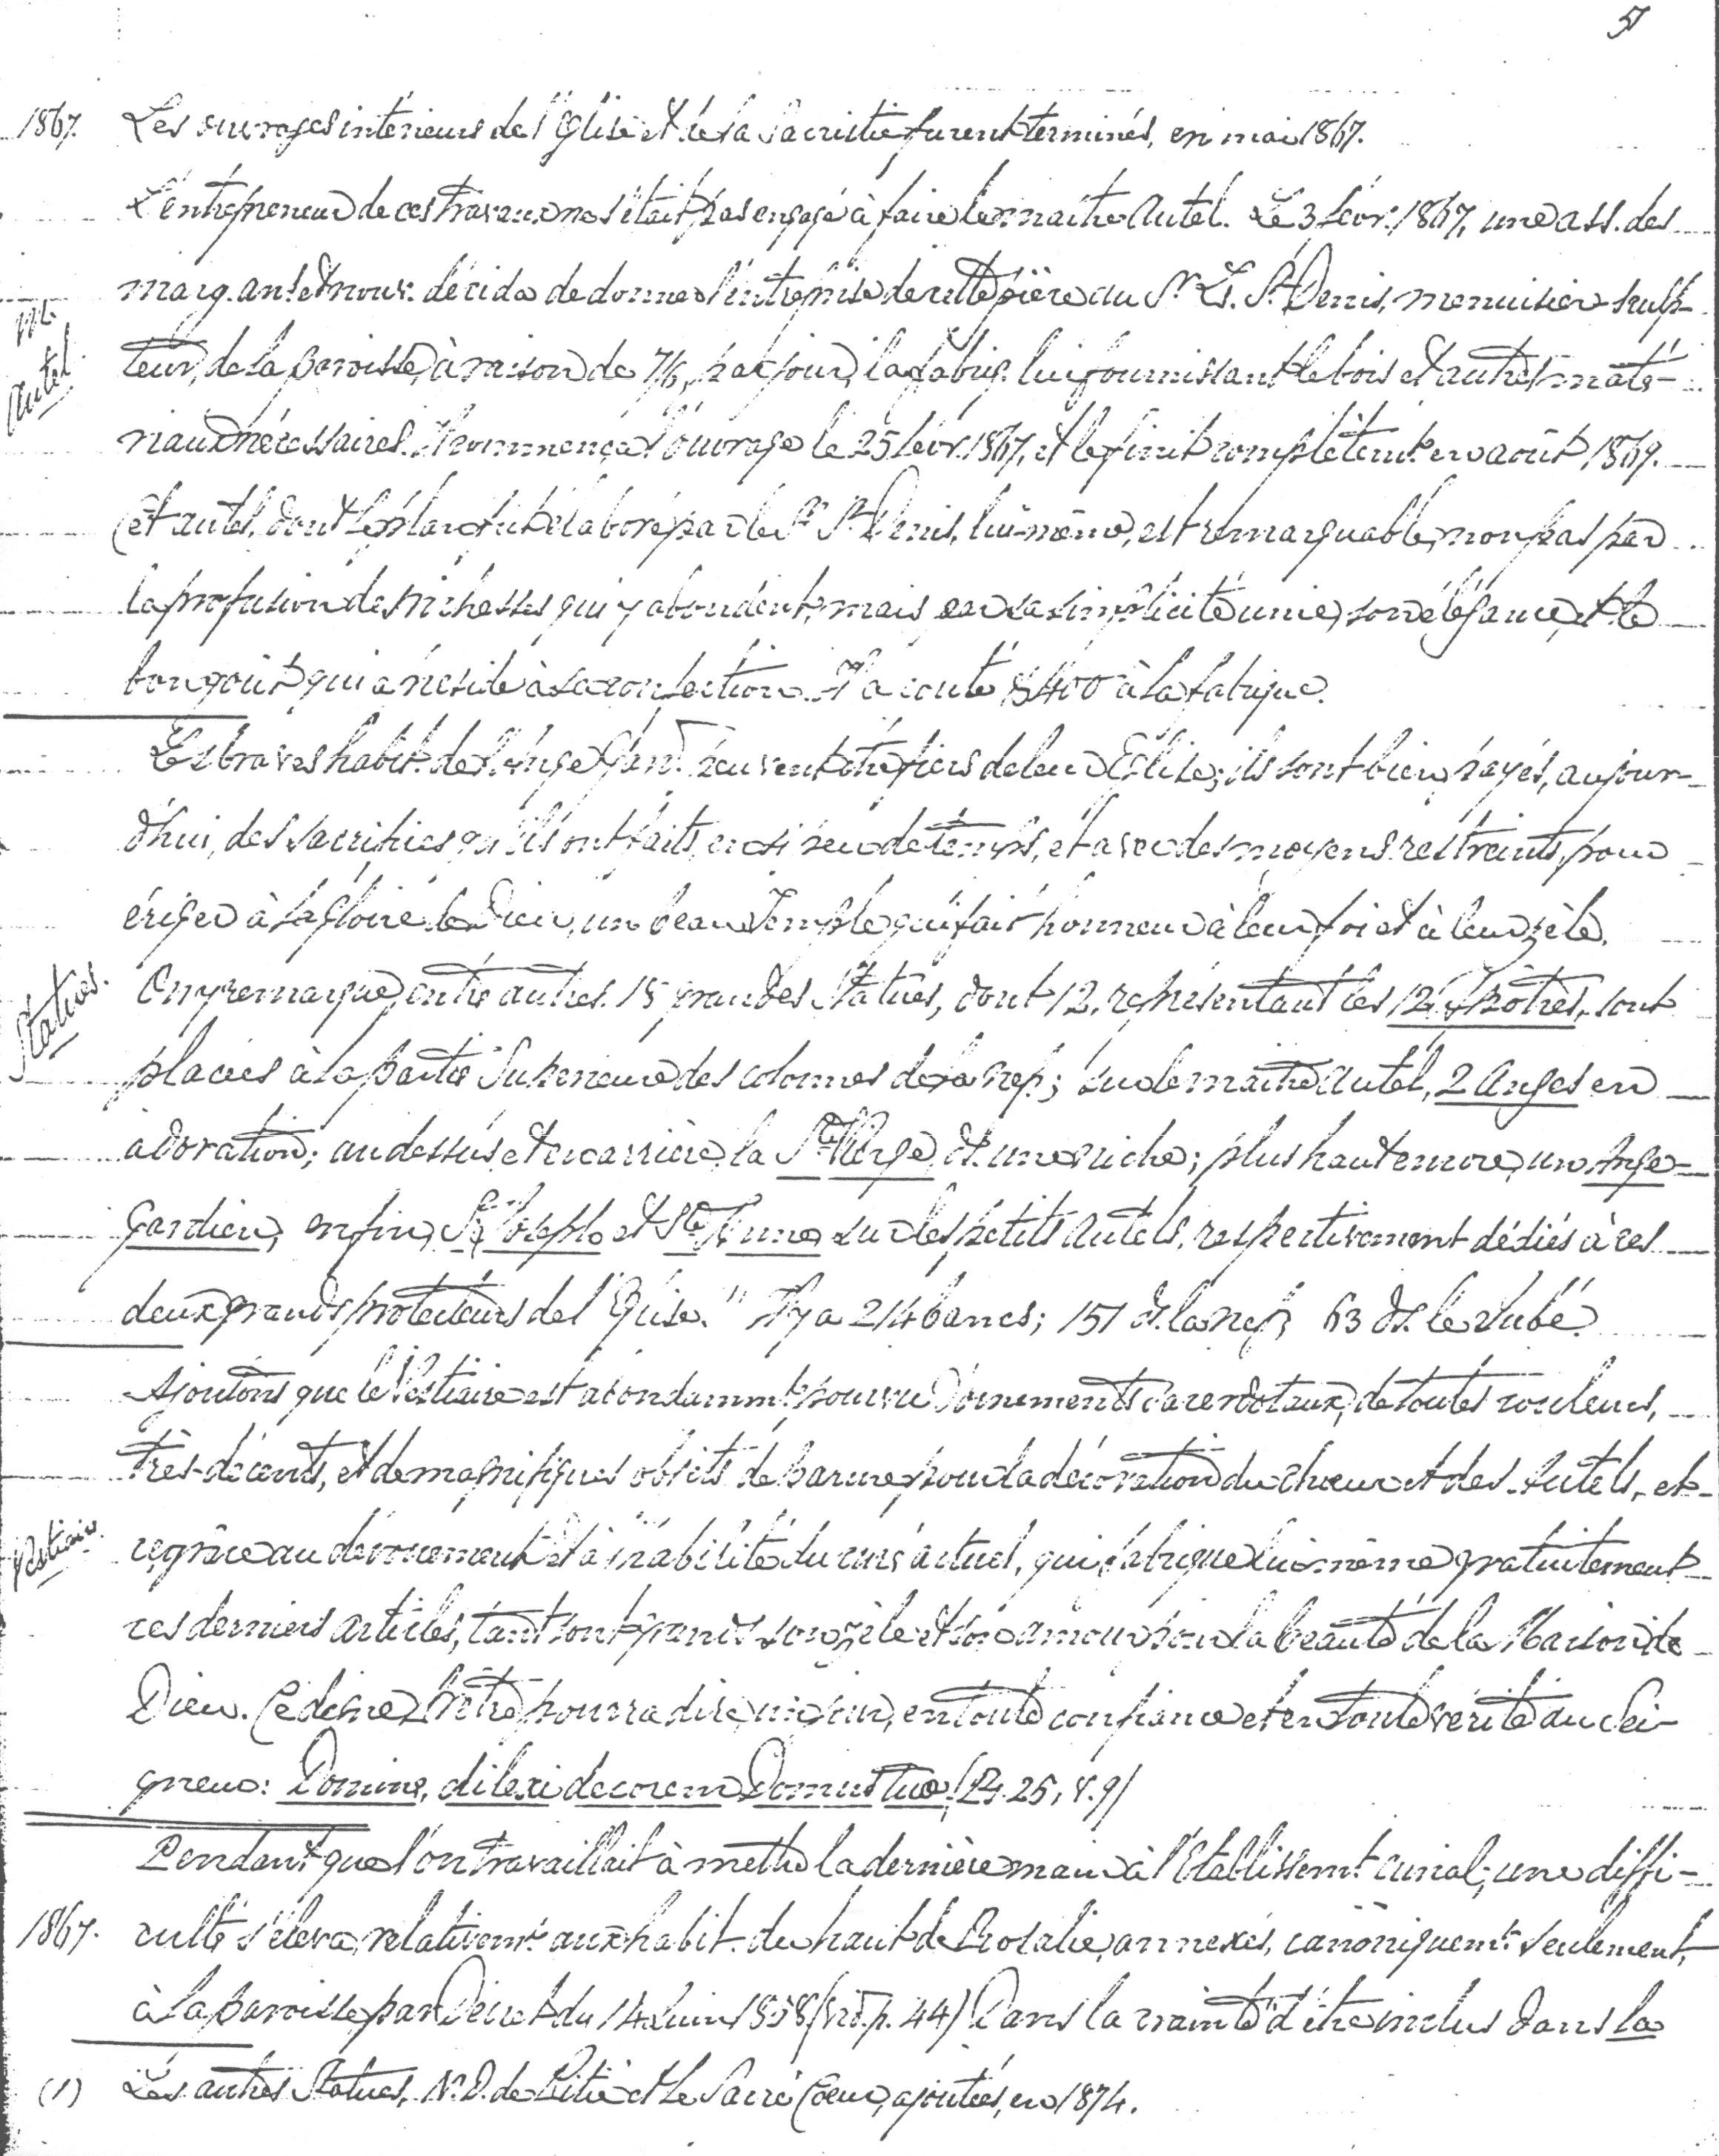 51
1867. Les ouvrages intérieurs de l'Eglise et de la Sacristie furent terminés, en mai 1867.
L'entrepreneur de ces travaux ne s'était pas engagé à faire le maitre Autel. Le 3 févr. 1867, une ass. des
marg. anc. et nouv. décida de donner l'entreprise de cette pièce au Sr. L. St. Denis, menuisier sculp-
Autel
teur, de la paroisse, à raison de 7/6, par jour, la fabriq. lui fournissant le bois et autres maté-
riaux nécessaires. Il commença l'ouvrage le 25 févr. 1867, et le finit complètemt. en août, 1869.
Cet autel, dont le plan fut élaboré par le Sr. St. Denis, lui-même, est remarquable, non pas par
la profusion des richesses qui y abondent, mais par sa simplicité unie, son élégance, et le
bon goût qui a présidé à sa confection. Il a couté $400 à la fabrique.
Les braves habit. de l'Ange Gard. peuvent être fiers de leur Eglise; ils sont bien payés, aujour-
d'hui, des sacrifices qu'ils ont faits, en si peu de temps, et avec des moyens restreints, pour
ériger à la gloire de Dieu, un beau Temple qui fait honneur à leur foi et à leur zèle.
Statues. On y remarque, entre autres, 15 grandes Statues, dont 12, représentant les 12 Apôtres, sont
placées à la partie Supérieure des colonnes de la nef; sur le maitre autel, 2 Anges en
adoration; au dessus et en arrière, la Ste. Vierge, ds. une niche; plus haut encore, un Ange-
Gardien, enfin, St. Joseph et Ste. Anne, sur les petits Autels, respectivement dédiés à ces
deux grands protecteurs de l'Eglise." Il y a 214 bancs; 151 ds. la nef, 63 ds. le Jubé.
Ajoutons que le Vestiaire est abondammt. pourvu d'ornements sacerdotaux, de toutes couleurs,
très-décents, et de magnifiques objets de parure pour la décoration du chœur et des Autels, et
Vestiaire. ce, grâce au dévouement et à l'habilité du curé actuel, qui fabrique lui-même gratuitement
ces derniers articles, tant sont grands son zèle et son amour pour la beauté de la Maison de
Dieu. Ce digne Prêtre pourra dire, un jour, en toute confiance et en toute vérité au Sei-
gneur: Domine, dilexi decorem Domus tuæ (Ps. 25, v. 9)
Pendant que l'on travaillait à mettre la dernière main à l'Etablissemt. curial, une diffi-
1867. culté s'éleva, relativemt. aux habit. du haut de Rosalie, annexés, canoniquemt. seulement,
à la paroisse, par Décret du 14 Juin 1858 (vid. p. 44) Dans la crainte d'être inclus dans la
(1) Les autres Statues, N. D. de Pitié et le Sacré Cœur, ajoutées, en 1874.